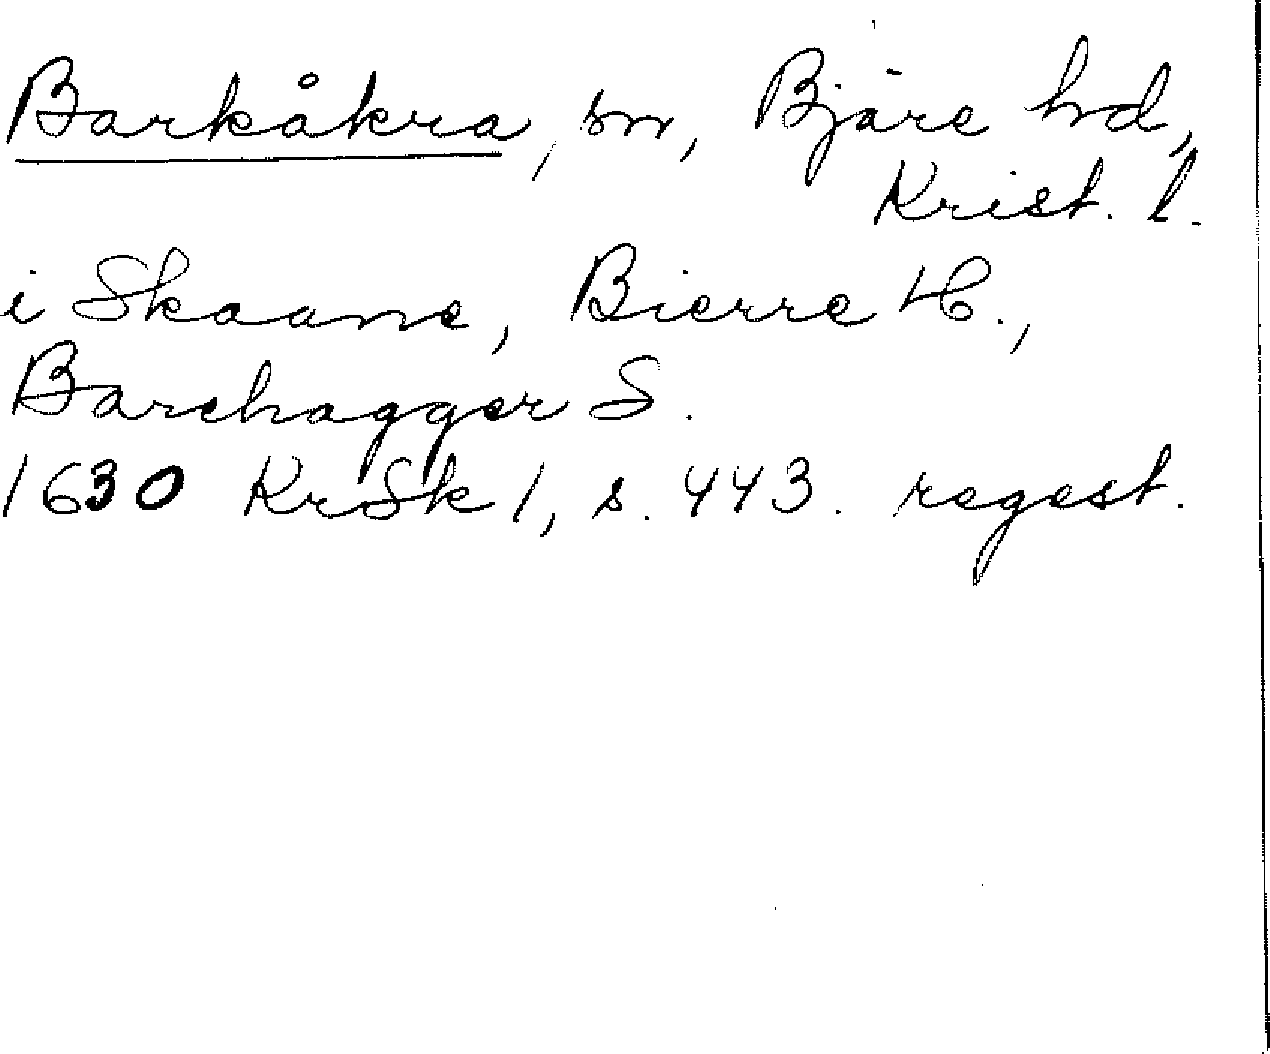 Barkåkra, sn, Bjäre hd,
Krist. l.
i Skaane, Bierre H.,
Barchagger S.
1630 KrSk 1, s. 443. regest.